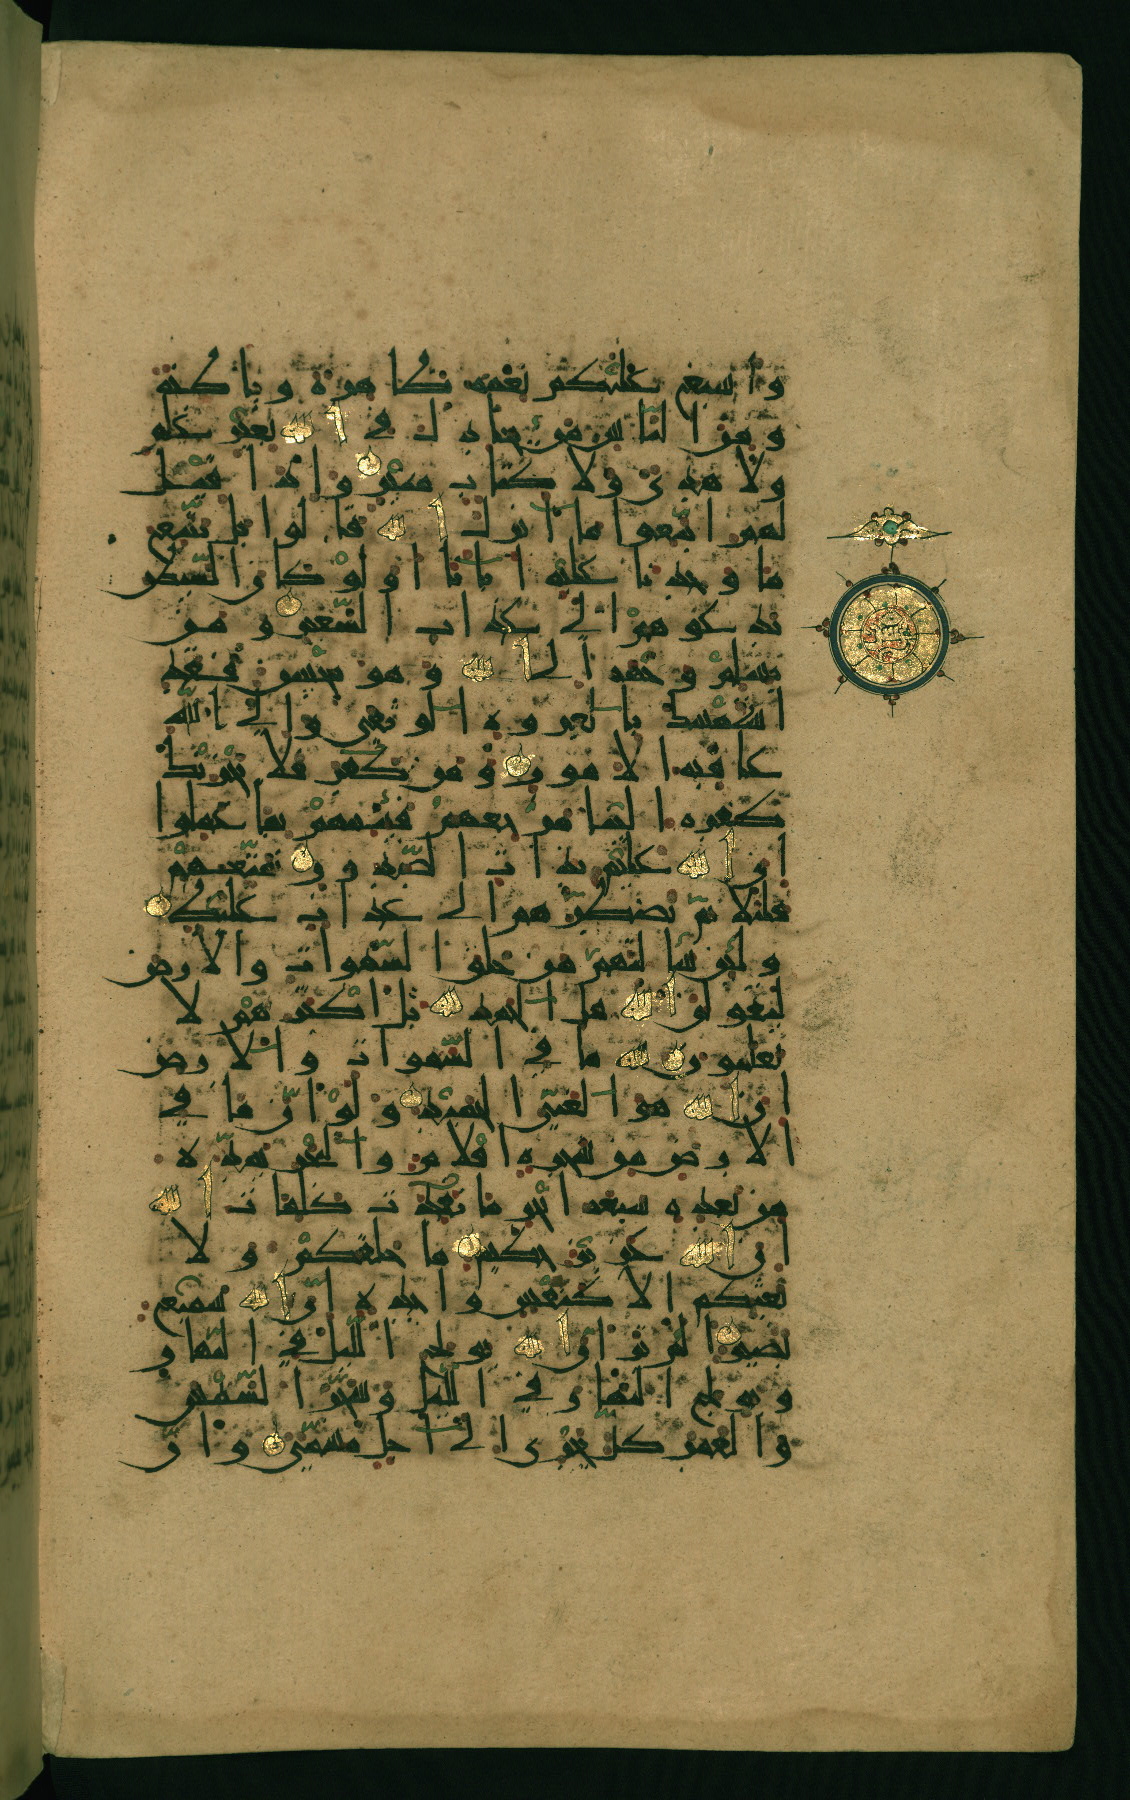 وأسبغ عليكم نعمه ظاهرة وباطنة
ومن الناس من يجادل في الله بغير علم
ولا هدى ولا كتاب منير وإذا قيل
لهم اتبعوا ما أنزل الله قالوا بل نتبع
ما وجدنا عليه آباءنا أولو كان الشيطن
يدعوهم إلى عذاب السعير ومن
يسلم وجهه إلى الله وهو محسن فقد
استمسك بالعروة الوثقى وإلى الله
عاقبة الأمور ومن كفر فلا يحزنك
كفره إلينا مرجعهم فننبئهم بما عملوا
إن الله عليم بذات الصدور نمتعهم
قليلا ثم نضطرهم إلى عذاب غليظ
ولئن سألتهم من خلق السموات والأرض
ليقولن الله قل الحمد لله بل أكثرهم لا
يعلمون لله ما في السموات والأرض
إن الله هو الغني الحميد ولو أن ما في
الأرض من شجرة أقلام والبحر يمده
من بعده سبعة أبحر ما نفدت كلمات الله
إن الله عزيز حكيم ما خلقكم ولا
بعثكم إلا كنفس واحدة إن الله سميع
بصير ألم تر أن الله يولج الليل في النهار
ويولج النهار في الليل وسخر الشمس
والقمر كل يجري إلى أجل مسمى وأن